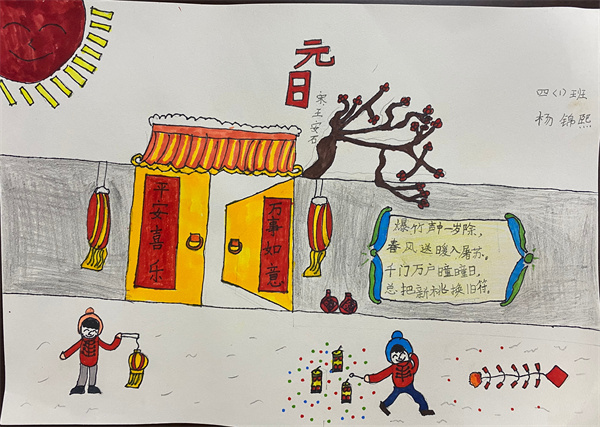 元日
宋 王安石
四(1)班
杨锦熙
平安喜乐
万事如意
爆竹声中一岁除,
春风送暖入屠苏。
千门万户曈曈日,
总把新桃换旧符。